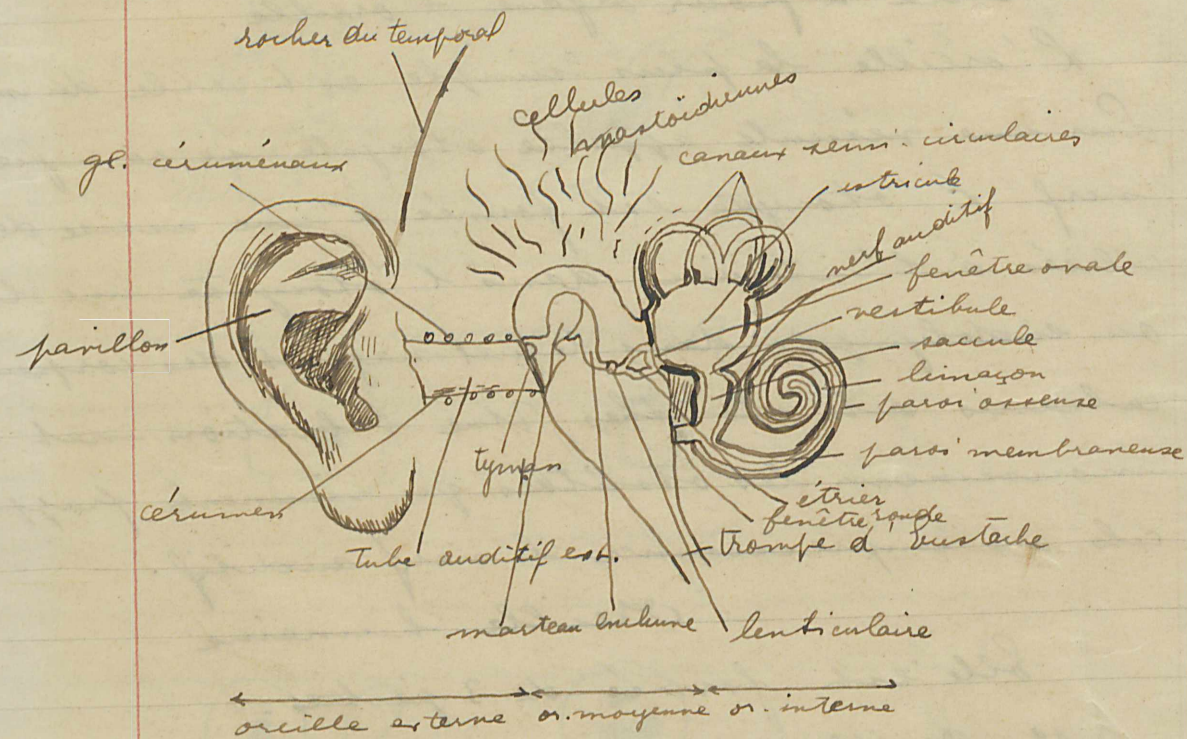 rocher du temporal
cellules
mastoïdiennes
gl. céruménaux
canaux semi-circulaires
utricule
nerf auditif
fenêtre ovale
vestibule
pavillon
saccule
limaçon
paroi osseuse
paroi membraneuse
tympan
cérumen
étrier
fenêtre ronde
tube auditif ext.
trompe d'Eustache
marteau enclume lenticulaire
oreille externe or. moyenne or. interne